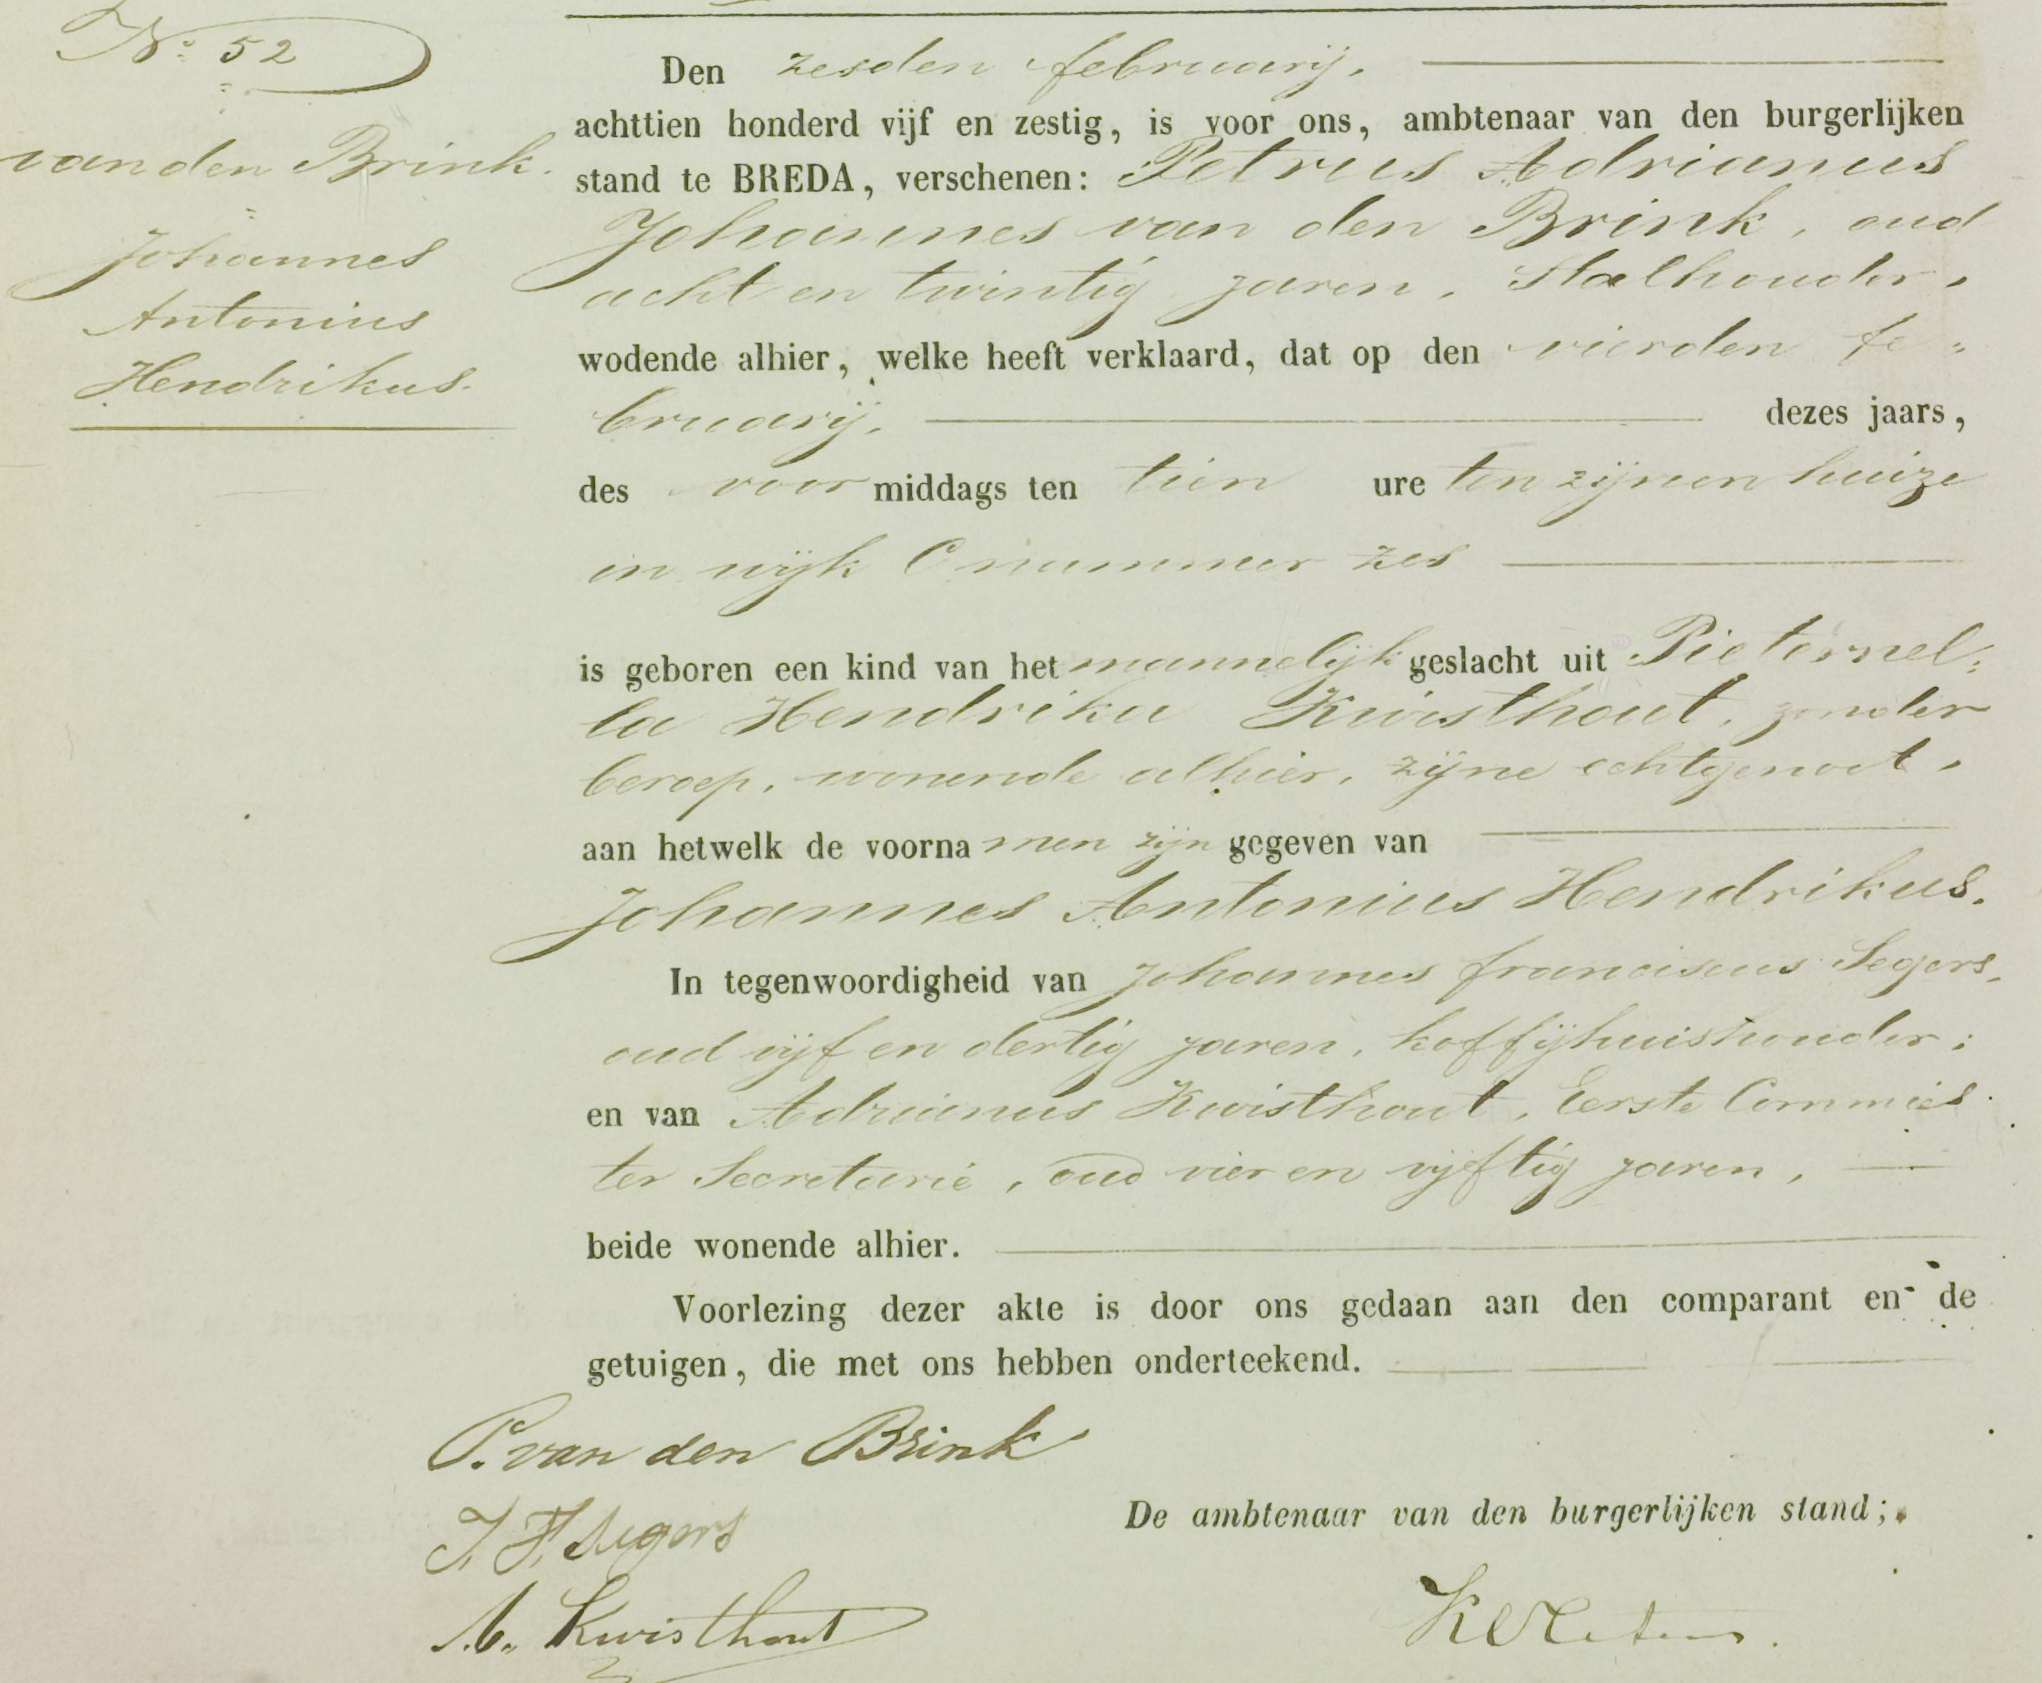 No. 52
van den Brink.
Johannes
Antonius
Hendrikus.
Den zesden februarij.
achttien honderd vijf en zestig, is voor ons, ambtenaar van den burgerlijken
stand te BREDA, verschenen: Petrus Adrianus
Johannes van den Brink, oud
acht en twintig jaren, Stalhouder,
wodende alhier, welke heeft verklaard, dat op den vierden fe=
bruarij, dezes jaars,
des voor middags ten tien ure ten zijnen huize
in wijk C nummer zes
is geboren een kind van het mannelijk geslacht uit Pieternel=
la Hendrika Kwisthout, zonder
beroep, wonende alhier, zijne echtgenoot,
aan hetwelk de voorna men zijn gegeven van
Johannes Antonius Hendrikus.
In tegenwoordigheid van Johannes franciscus Segers,
oud vijf en dertig jaren, koffijhuishouder;
en van Adrianus Kwisthout, Eerste Commies
ter Secretarie, oud vier en vijftig jaren,
beide wonende alhier.
Voorlezing dezer akte is door ons gedaan aan den comparant en de
getuigen, die met ons hebben onderteekend.
P. van den Brink
J. F. Segers
A. Kwisthout
De ambtenaar van den burgerlijken stand;